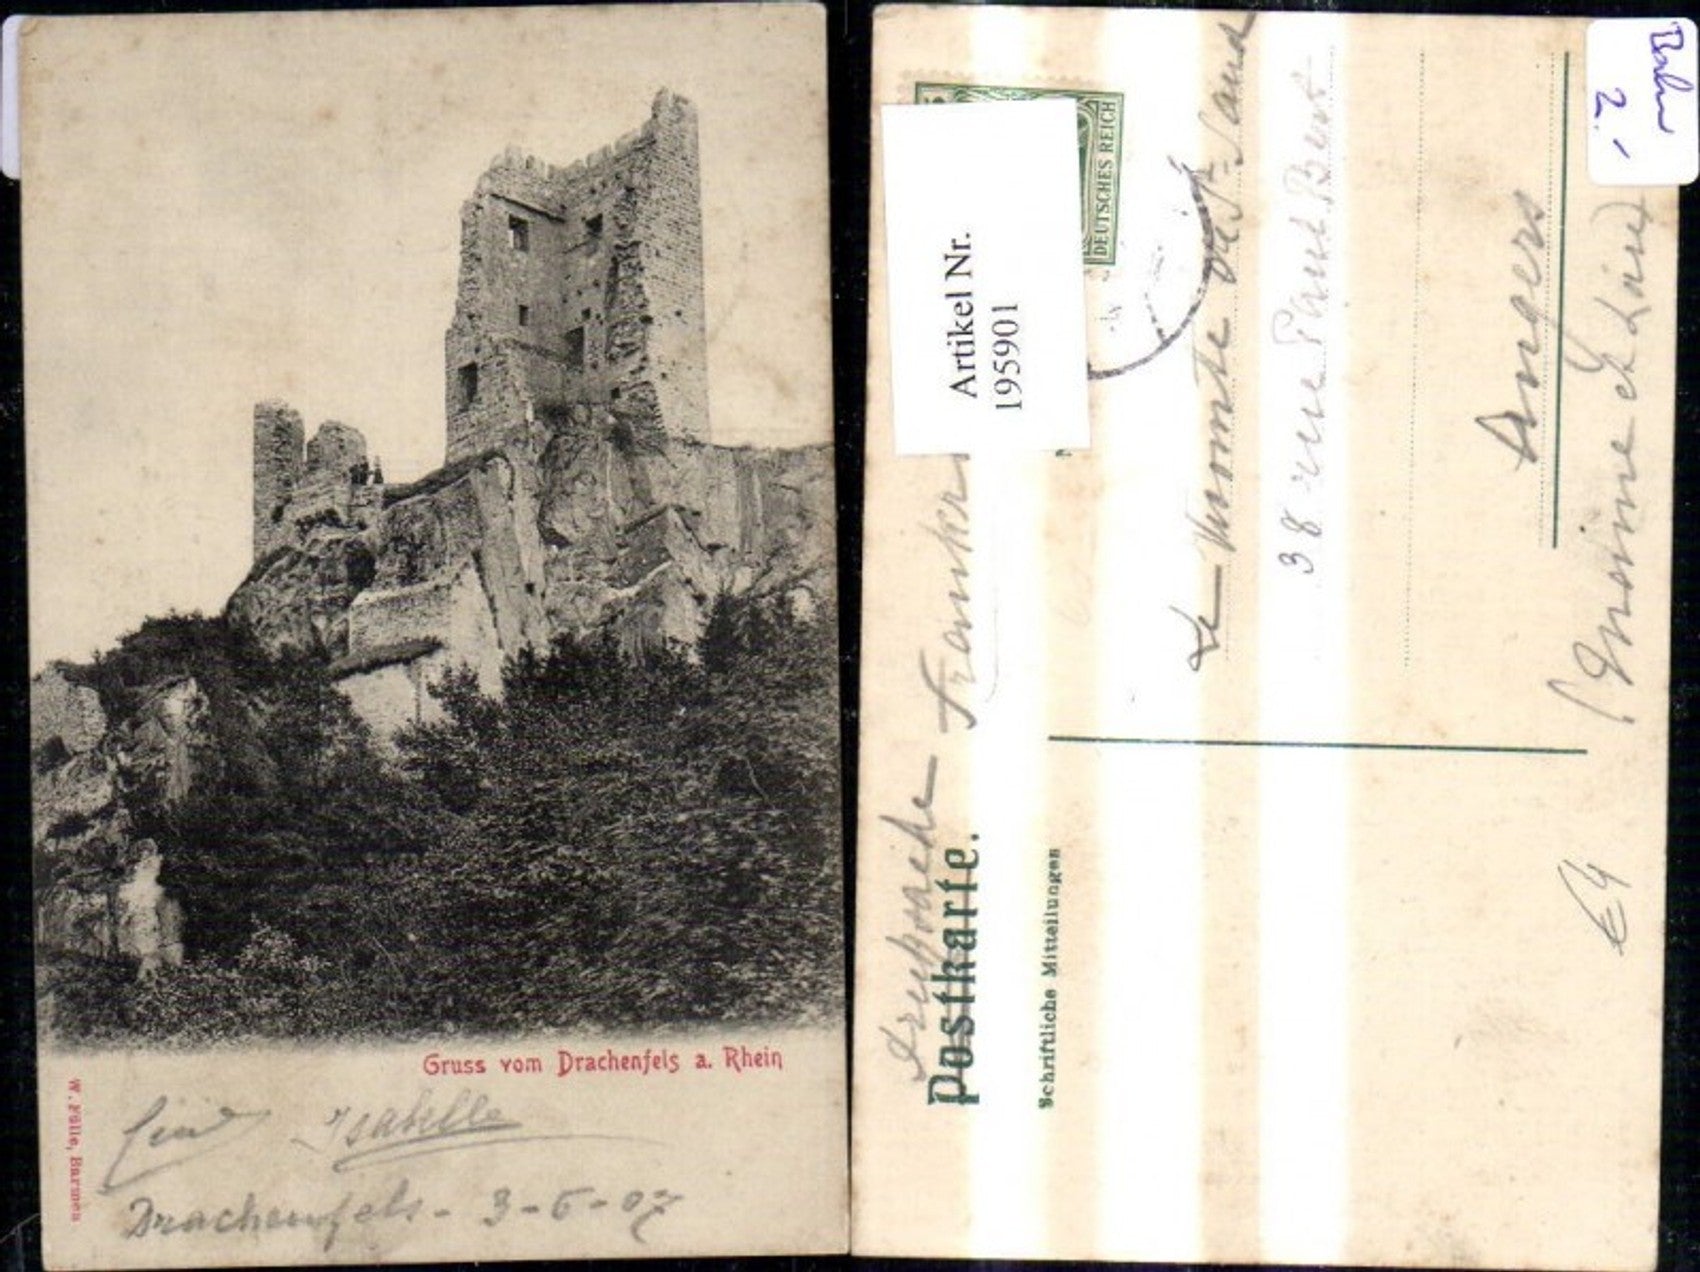 Gruss vom Drachenfels a. Rhein
W. Fülle, Barmen
Isabelle
Drachenfels - 3-6-07
DEUTSCHES REICH
Artikel Nr.
195901
Postkarte.
Schriftliche Mitteilungen
Le Vicomte de
38 rue
Angers
(Maine et Loire)
€4
2.-